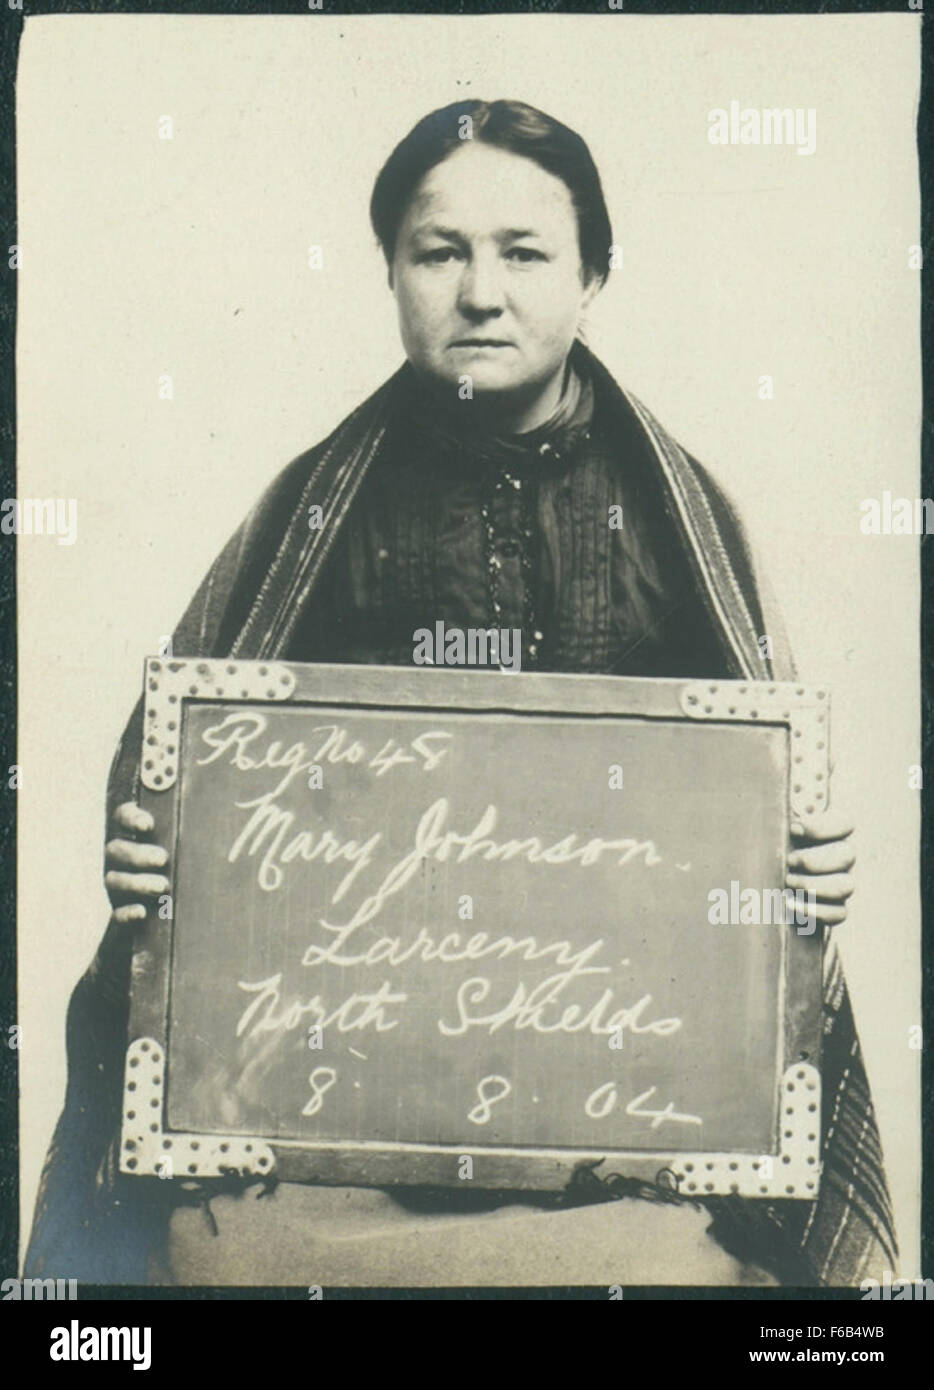 Reg No 48
Mary Johnson.
Larceny.
North Shields
8. 8. 04
alamy
alamy
alamy
alamy
alamy
a
a
a
a
a
a
alamy
Image ID: F6B4WB
www.alamy.com